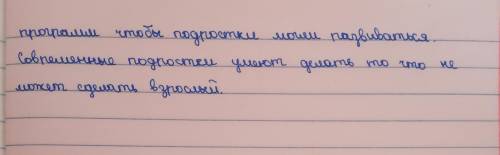 программ чтобы подростки могли развиваться.
Современные подростки умеют делать то что не
может сделать взрослый.